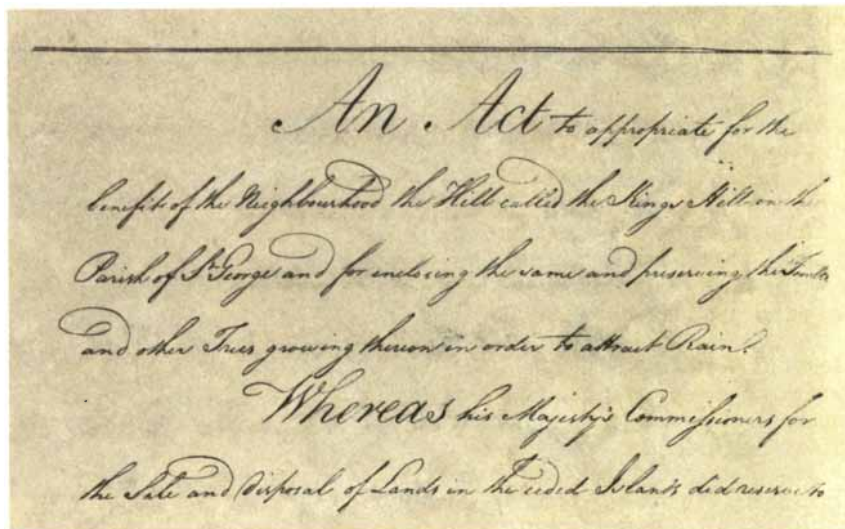 An Act to appropriate for the
benefit of the Neighbourhood the Hill called the Kings Hill in the
Parish of St George and for enclosing the same and preserving the Timber
and other Trees growing thereon in order to attract Rain.
Whereas his Majesty's Commissioners for
the Sale and Disposal of Lands in the ceded Islands did reserve to